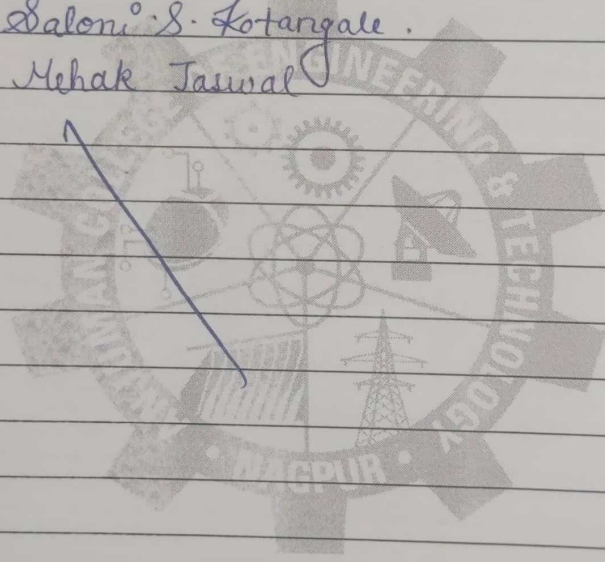 Saloni S. Kotangale.
Mehak Jaswal
ENGINEERING & TECHNOLOGY
• NAGPUR •